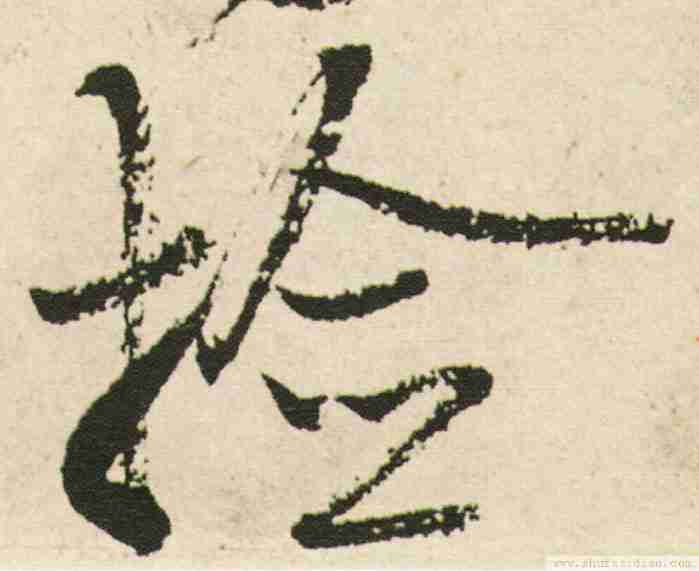 檢
www.shufazidian.com